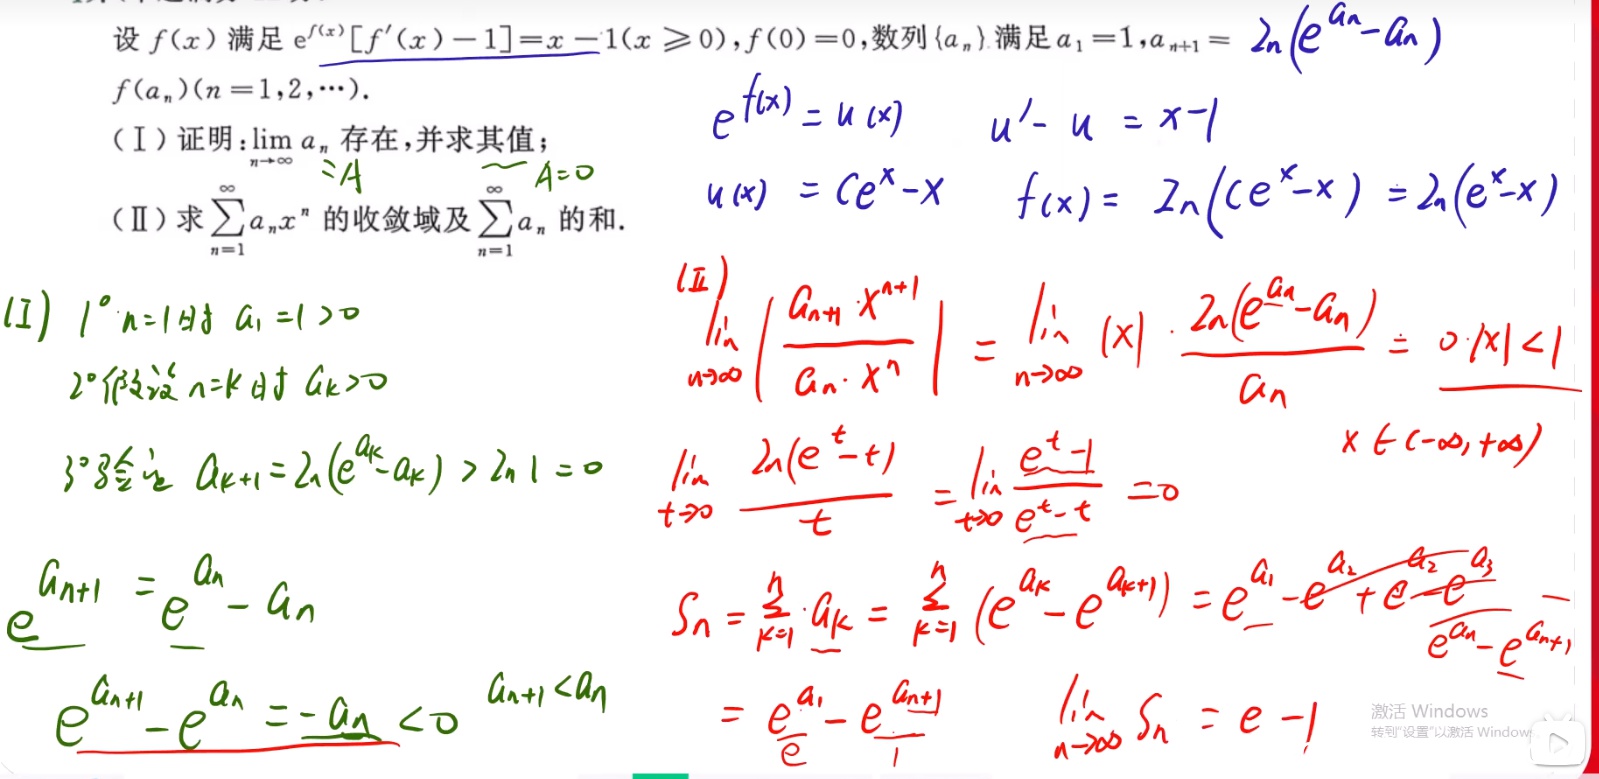 设 f(x) 满足 e^{f(x)}[f′(x)−1]=x−1(x≥0),f(0)=0,数列{a_n}满足a_1=1,a_{n+1}= ln(e^{a_n}-a_n)
f(a_n)(n=1,2,⋯).
(Ⅰ)证明:lim_{n→∞} a_n 存在,并求其值;
=A A=0
(Ⅱ)求 ∑_{n=1}^{∞} a_n x^n 的收敛域及 ∑_{n=1}^{∞} a_n 的和.
e^{f(x)} = u(x) u′- u = x-1
u(x) = Ce^x-x f(x) = ln(Ce^x-x) = ln(e^x-x)
(I) 1° n=1时 a_1=1>0
2° 假设 n=k时 a_k>0
3° 验证 a_{k+1}=ln(e^{a_k}-a_k) > ln1=0
e^{a_{n+1}} = e^{a_n} - a_n
e^{a_{n+1}} - e^{a_n} = -a_n <0 a_{n+1}<a_n
(Ⅱ)
lim_{n→∞} |a_{n+1}·x^{n+1} / a_n·x^n| = lim_{n→∞} |x|· ln(e^{a_n}-a_n) / a_n = 0·|x|<1
x∈(-∞,+∞)
lim_{t→0} ln(e^t-t) / t = lim_{t→0} (e^t-1) / (e^t-t) =0
S_n = ∑_{k=1}^{n} a_k = ∑_{k=1}^{n} (e^{a_k}-e^{a_{k+1}}) = e^{a_1}-e^{a_2}+e^{a_2}-e^{a_3} -
e^{a_n}-e^{a_{n+1}}
= e^{a_1}-e^{a_{n+1}} lim_{n→∞} S_n = e-1
e 1
激活 Windows
转到"设置"以激活 Window